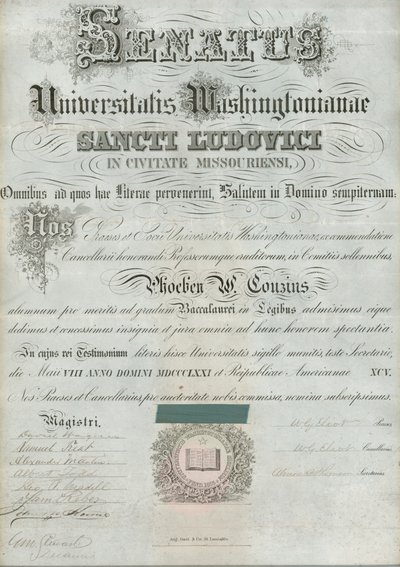 SENATUS
Universitatis Washingtonianae
SANCTI LUDOVICI
IN CIVITATE MISSOURIENSI,
Omnibus ad quos hae Literae pervenerint, Salutem in Domino sempiternam:
Nos Praeses et Socii Universitatis Washingtonianae, ex commendatione
Cancellarii honorandi Professorumque eruditorum, in Comitiis sollennibus,
Phoeben W. Couzins
alumnum pro meritis ad gradum Baccalaurei in Legibus admisimus eique
dedimus et concessimus insignia et jura omnia ad hunc honorem spectantia.
In cujus rei Testimonium literis hisce Universitatis sigillo munitis, teste Secretario,
die Maii VIII ANNO DOMINI MDCCCLXXI et Reipublicae Americanae XCV.
Nos Praeses et Cancellarius, pro auctoritate nobis commissa, nomina subscripsimus.
Magistri.
Samuel Treat
Alexander Martin
Albert Todd
W. G. Eliot Praeses
W. G. Eliot Cancellarius
Secretarius
Aug. Gast & Co. St. Louis, Mo.